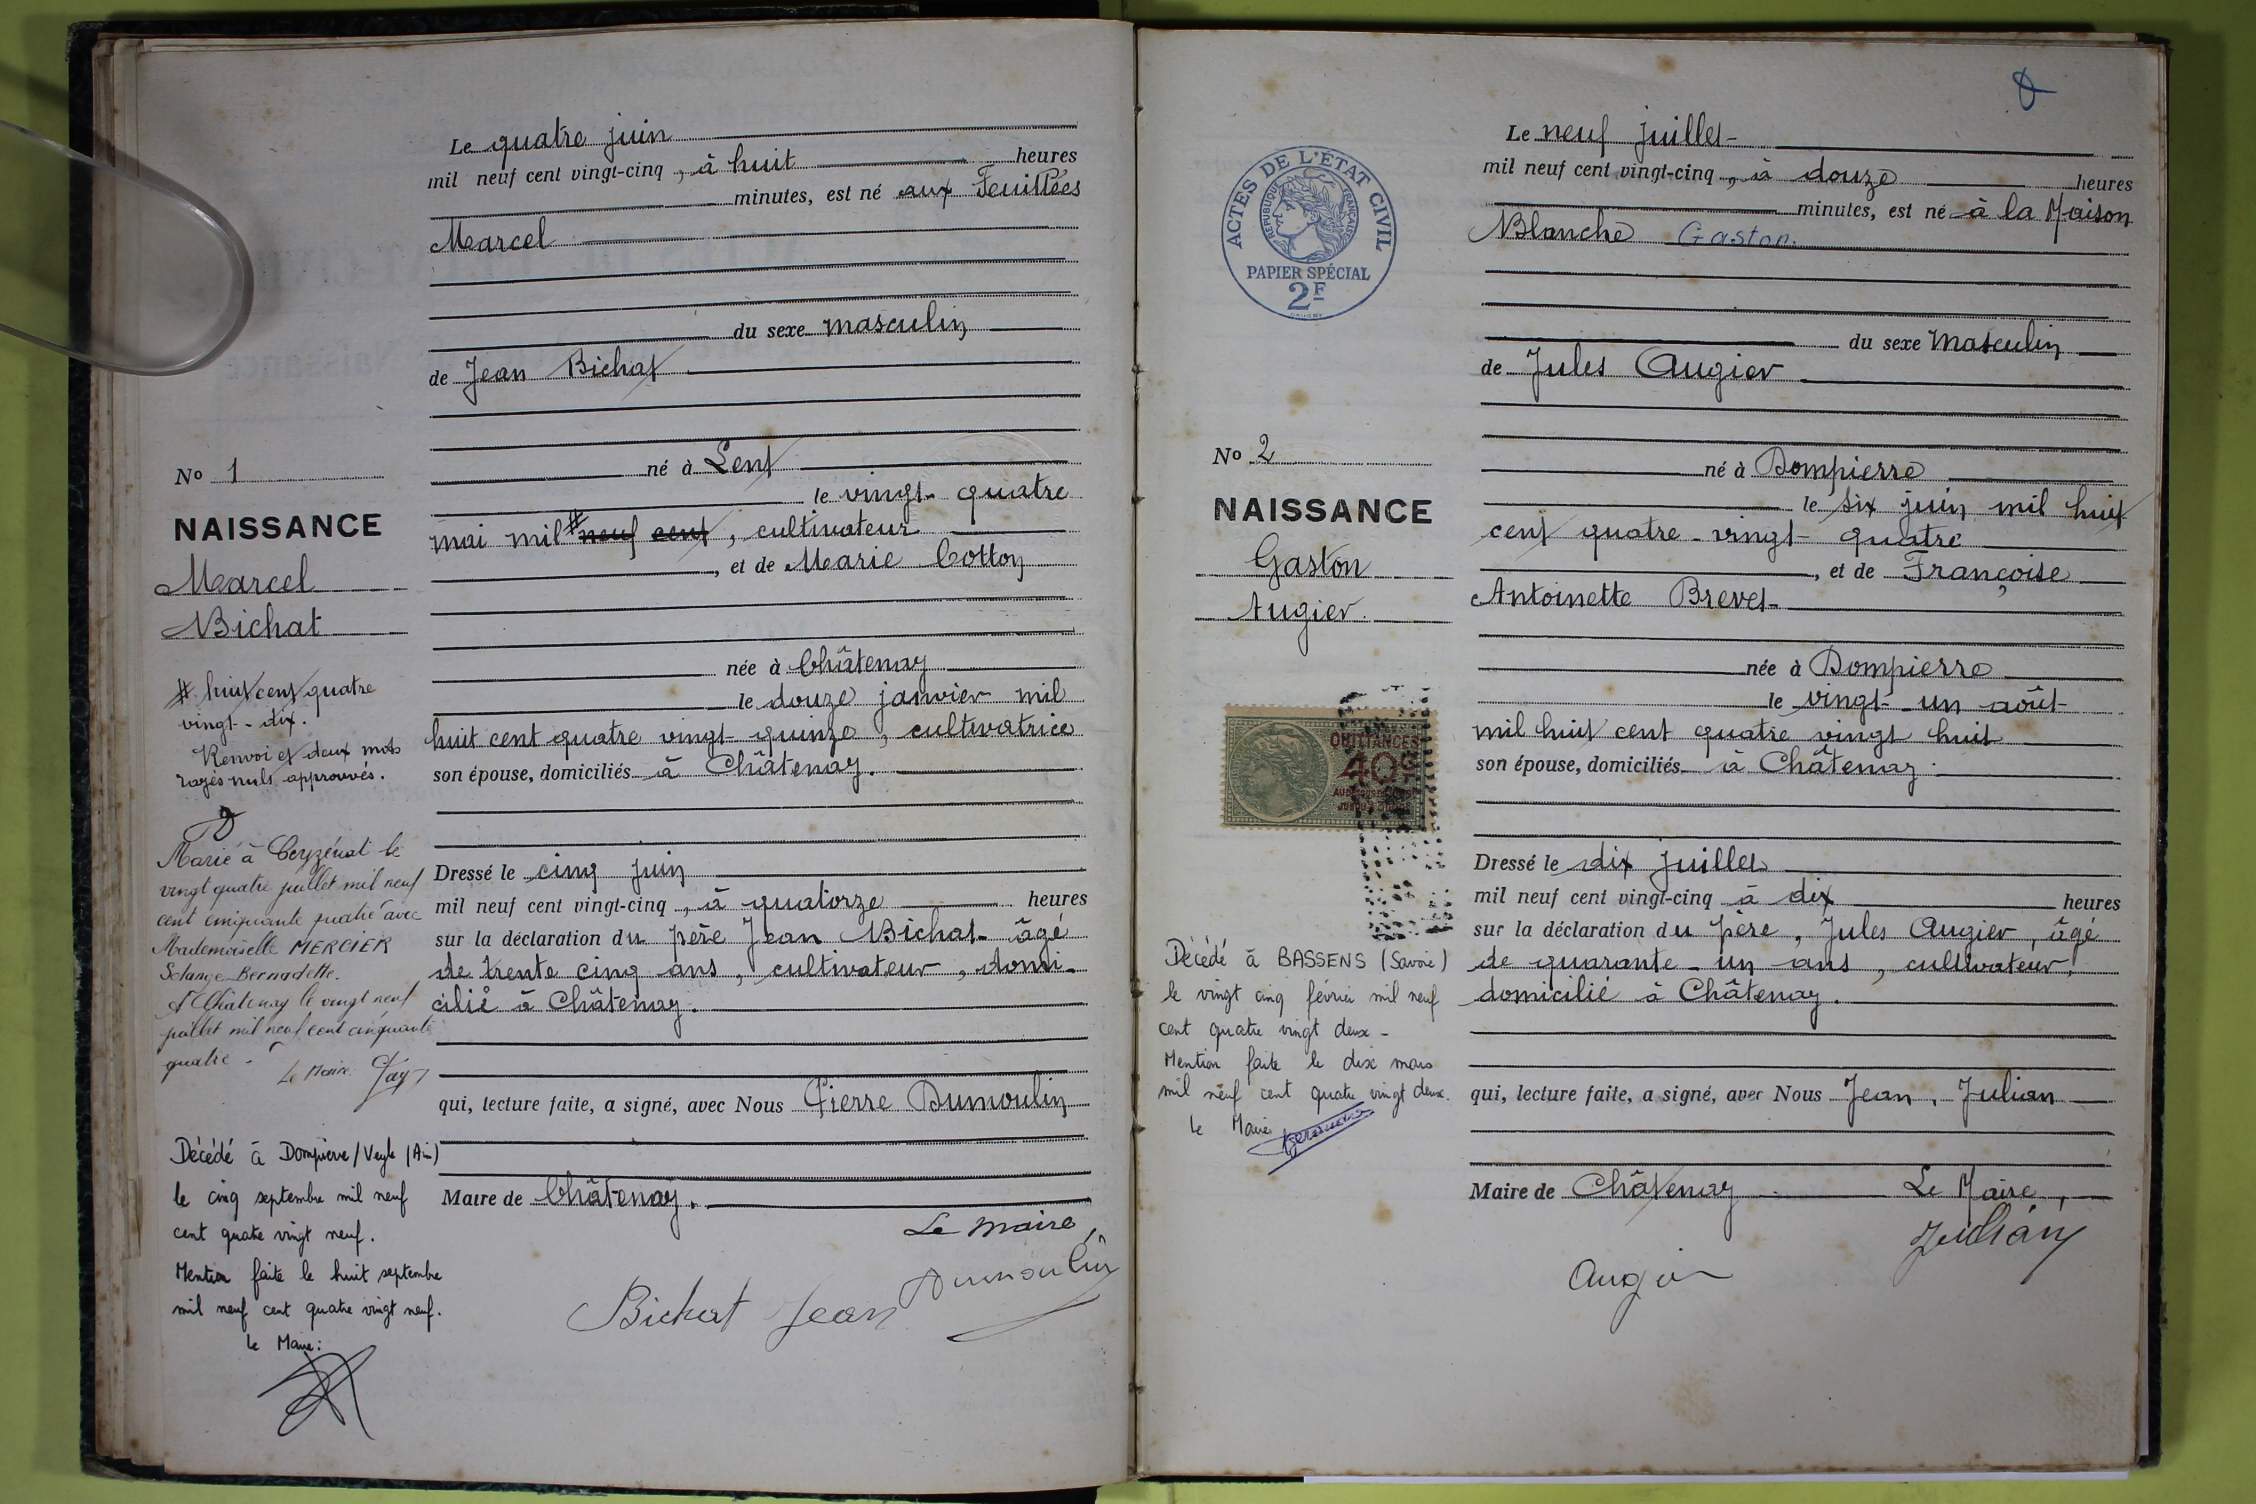 Le quatre juin
mil neuf cent vingt-cinq, à huit heures
minutes, est né aux Feuillées
Marcel
du sexe masculin
de Jean Bichat
né à Lent
le vingt-quatre
mai mil # neuf cent, cultivateur
, et de Marie Cotton
née à Châtenay
le douze janvier mil
huit cent quatre vingt quinze, cultivatrice
son épouse, domiciliés à Châtenay.
Dressé le cinq juin
mil neuf cent vingt-cinq, à quatorze heures
sur la déclaration du père Jean Bichat âgé
de trente cinq ans, cultivateur, domi-
cilié à Châtenay.
qui, lecture faite, a signé, avec Nous Pierre Dumoulin
Maire de Châtenay.
Le maire,
Dumoulin
Bichat Jean
No 1
NAISSANCE
Marcel
Bichat
# huit cent quatre
vingt-dix.
Renvoi et deux mots
rayés nuls approuvés.
Marié à Ceyzériat le
vingt quatre juillet mil neuf
cent cinquante quatre avec
Mademoiselle MERCIER
Solange Bernadette.
A Châtenay le vingt neuf
juillet mil neuf cent cinquante
quatre -
Le Maire
Décédé à Dompierre/Veyle (Ain)
le cinq septembre mil neuf
cent quatre vingt neuf.
Mention faite le huit septembre
mil neuf cent quatre vingt neuf.
Le Maire:
ACTES DE L'ÉTAT CIVIL
RÉPUBLIQUE FRANÇAISE
PAPIER SPÉCIAL
2F
No 2
NAISSANCE
Gaston
Augier.
QUITTANCES
40c
Décédé à BASSENS (Savoie)
le vingt cinq février mil neuf
cent quatre vingt deux -
Mention faite le dix mars
mil neuf cent quatre vingt deux.
Le Maire
Le neuf juillet
mil neuf cent vingt-cinq, à douze heures
minutes, est né à la Maison
Blanche Gaston.
du sexe Masculin
de Jules Augier
né à Dompierre
le six juin mil huit
cent quatre-vingt-quatre
, et de Françoise
Antoinette Brevet
née à Dompierre
le vingt-un août
mil huit cent quatre vingt huit
son épouse, domiciliés à Châtenay.
Dressé le dix juillet
mil neuf cent vingt-cinq à dix heures
sur la déclaration du père, Jules Augier, âgé
de quarante-un ans, cultivateur,
domicilié à Châtenay.
qui, lecture faite, a signé, avec Nous Jean, Julian
Maire de Châtenay Le Maire,
Julian
Augier